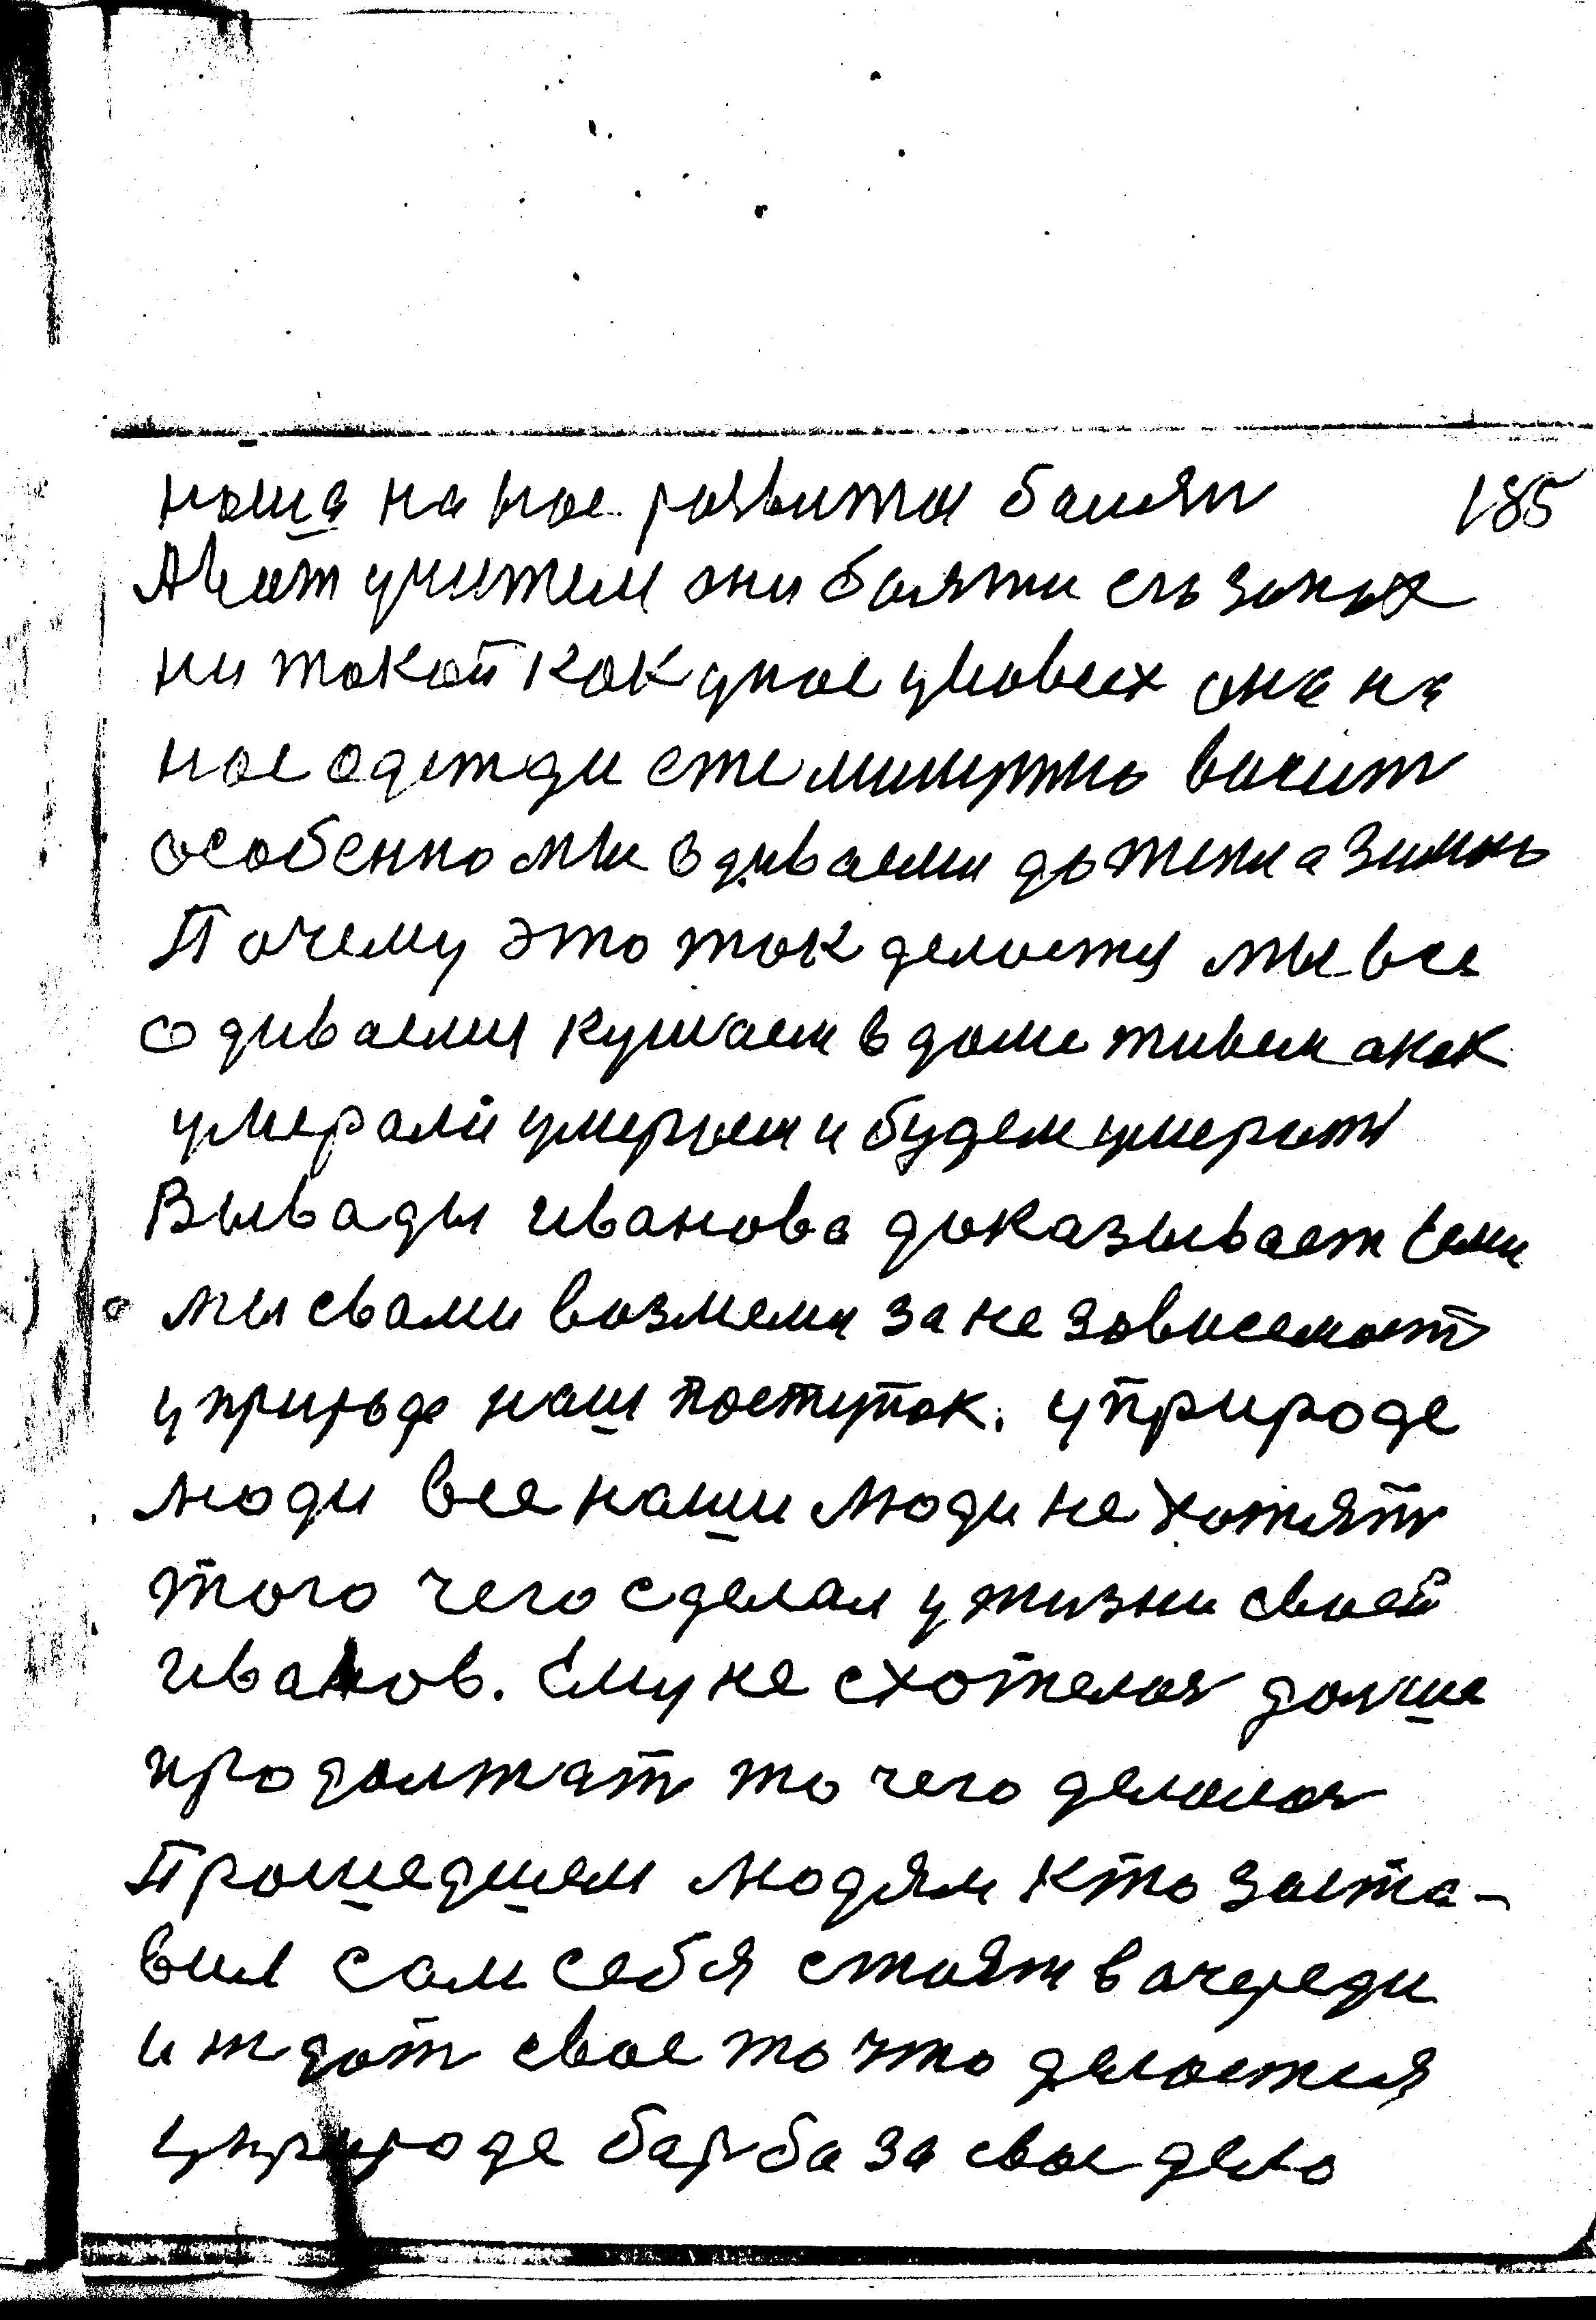 наша на нас развитая болезн 185
А вот учителя они боятся ему запах
ни такой как у нас у всех она на
нас одежди сте минутно висит
особенно мы одиваемся до тепла зимнь
Почему это так делается мы все
одиваемся кушаем в доме живем а как
умерали умераем и будем умерать
Вывады иванова доказывает Если
мы свами возмемся за не зависемост
у природе наш поступок. у природе
люди все наши люди не хотять
того чего сделал у жизни своей
иванов. Ему не схотелося дальше
продолжать то чего делалося
Прошедшем людям кто заста-
вил сам себя стоять в очереди
и ждать свое то что делается
у природе барба за свое дело